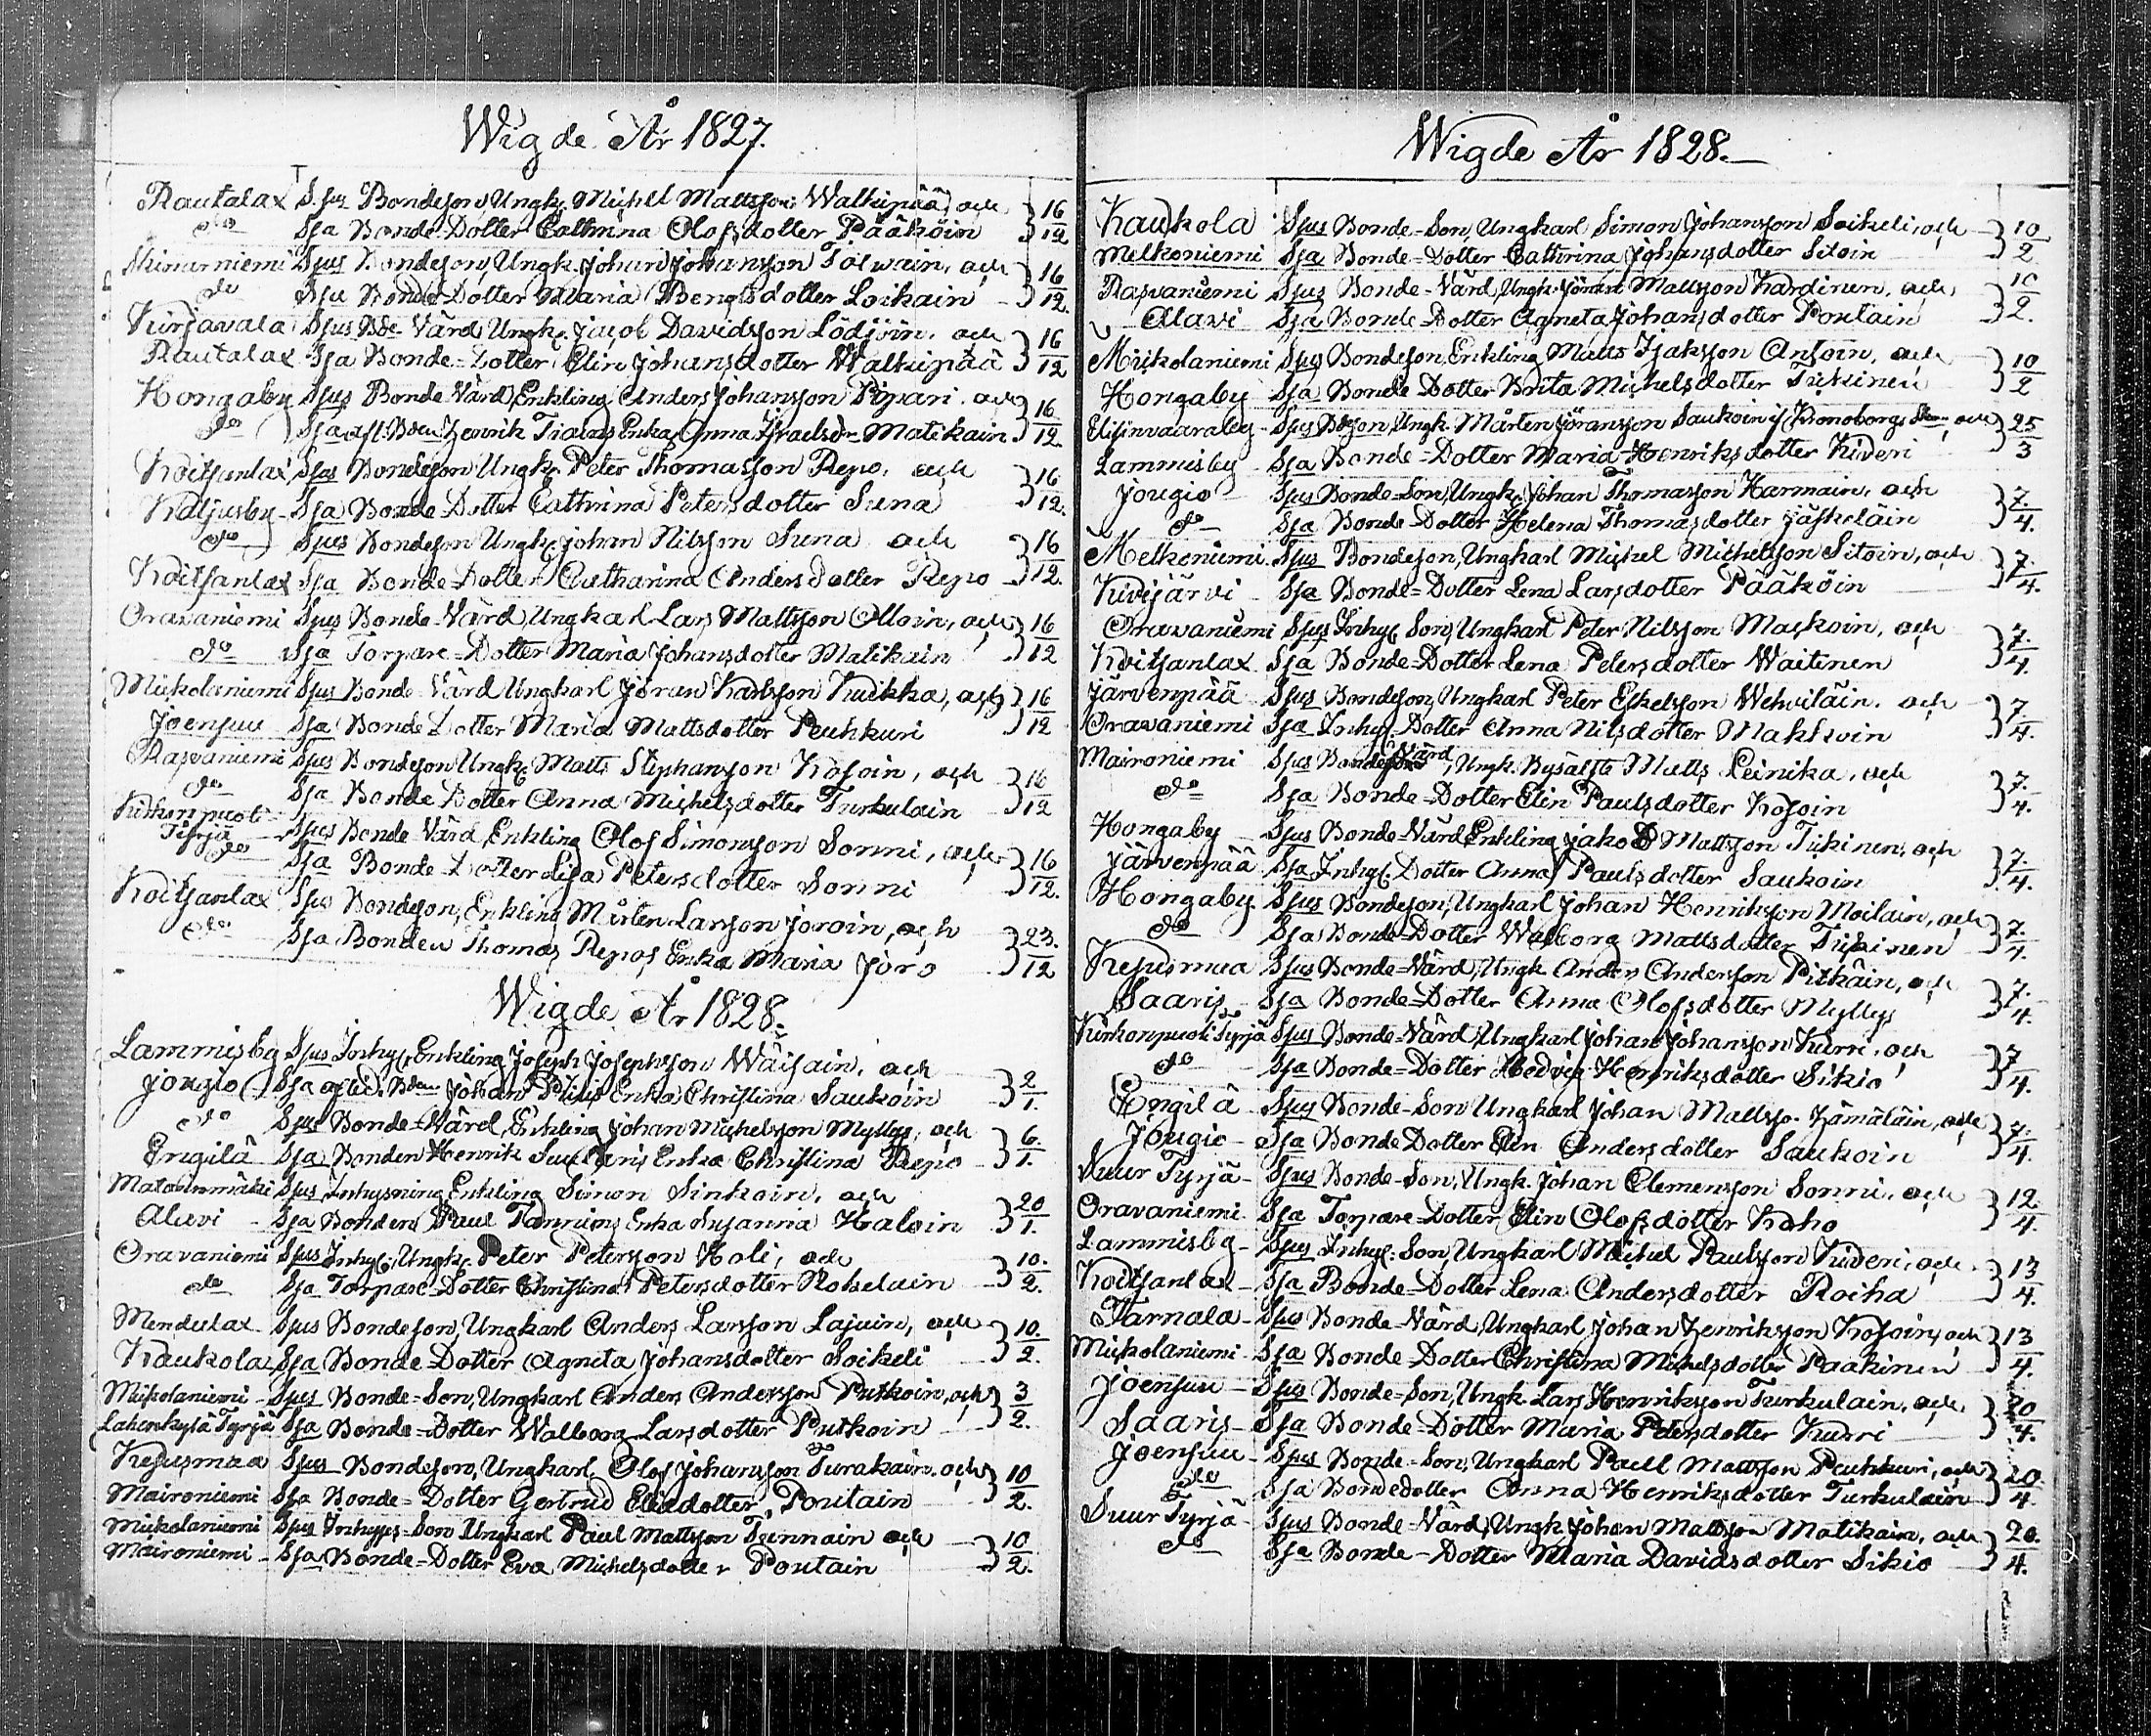 Wigde År 1827.
Rautalax Sjus Bondeson, Ungk. Michel Mattsson Walkipää, och } 16
do Sja Bonde-Dotter Cathrina Olofsdotter Pääköin } 12
niemi Sjus Bondeson, Ungk. Johan Johansson Tolwain, och } 16
do Sja Bonde-Dotter Maria Bengtsdotter Loikain } 12.
Kirjavala Sjus Bde-Värd Ungk. Jacob Davidsson Lödjöin, och } 16
Rautalax Sja Bonde-Dotter Elin Johansdotter Walkipää } 12
Hongaby Sjus Bonde-Värd, Enkling Anders Johansson Pipari, och } 16
do Sja afl. Bden Henrik Tiains Enka, Anna Israelsdr Matikain } 12.
Koitsanlax Sjus Bondeson Ungk. Peter Thomasson Repo, och } 16
Kaljusby Sja Bonde-Dotter Cathrina Petersdotter Suna } 12.
do Sjus Bondeson Ungk. Johan Nilsson Suna och } 16
Koitsanlax Sja Bonde-Dotter Catharina Andersdotter Repo } 12.
Oravaniemi Sjus Bonde-Värd, Ungkarl Lars Mattsson Olloin, och } 16
do Sja Torpare-Dotter Maria Johansdotter Matikain } 12
Mickolaniemi Sjus Bonde-Värd Ungkarl Jöran Karlsson Kuikka, och } 16
Joensuu Sja Bonde Dotter Maria Mattsdotter Peuhkuri } 12
Raspaniemi Sjus Bondeson Ungk. Matts Stephansson Kosoin, och } 16
do Sja Bonde Dotter Anna Michelsdotter Turkulain } 12
Kirkonpuoli
Tyrjä Sjus Bonde-Värd, Enkling Olof Simonsson Sonni, och } 16
do Sja Bonde-Dotter Lisa Petersdotter Sonni } 12.
Koitsanlax Sjus Bondeson, Enkling Mårten Larsson Joroin, och } 23.
do Sja Bonden Thomas Repos Enka Maria Joro } 12
Wigde År 1828.
Lammisby Sjus Inhys. Enkling Joseph Josephsson Wäisäin, och } 2
Jougio Sja afled. Bden Johan Enka Christina Saukoin } 1.
do Sjus Bonde-Värd, Enkling Johan Michelsson Myllys, och } 6.
Engilä Sja Bonden Henrik Enka Christina Repo } 1.
Matoinmäki Sjus Inhysning Enkling Simon Sinkoin, och } 20
Alavi Sja Bonden Paul Enka Susanna Haloin } 1.
Oravaniemi Sjus Inhys. Ungk. Peter Petersson Holi, och } 10.
do Sja Torpare-Dotter Christina Petersdotter Rokelain } 2.
Mendulax Sjus Bondeson, Ungkarl Anders Larsson Lajuin, och } 10.
Kaukola Sja Bonde-Dotter Agneta Johansdotter Soikeli } 2.
Mickolaniemi Sjus Bonde-Son, Ungkarl Anders Andersson Putkoin, och } 3
Lahenkylä Tyrjä Sja Bonde-Dotter Walborg Larsdotter Putkoin } 2.
Kesusmaa Sjus Bondeson, Ungkarl Olof Johansson Turakain, och } 10
Maironiemi Sja Bonde-Dotter Gertrud Eliædotter Poutain } 2.
Mickolaniemi Sjus Inhyses-Son Ungkarl Paul Mattsson Teinnain och } 10
Maironiemi Sja Bonde-Dotter Eva Michelsdotter Poutain } 2.
Wigde År 1828.
Kaukola Sjus Bonde-Son, Ungkarl Simon Johansson Soikeli, och } 10
Melkoniemi Sja Bonde-Dotter Cathrina Johansdotter Sitoin } 2
Raspaniemi Sjus Bonde-Värd, Ungk. Jöran Mattsson Kardinen, och } 10
Alavi Sja Bonde-Dotter Agneta Johansdotter Poutain } 2.
Mickolaniemi Sjus Bondeson, Enkling Matts Isaksson Ansoin, och } 10
Hongaby Sja Bonde Dotter Brita Michelsdotter Tiikinen } 2
Elisinvaaraby Sjus Bdeson, Ungk. Mårten Jöransson Saukoin if. Kronoborgs och } 25
Lammisby Sja Bonde-Dotter Maria Henriksdotter Kideri } 3
Jougio Sjus Bonde-Son, Ungk. Johan Thomasson Harmain, och } 7.
do Sja Bonde-Dotter Helena Thomasdotter Jäskeläin } 4.
Melkoniemi Sjus Bondeson, Ungkarl Michel Michelsson Sitoin, och } 7.
Kivijärvi Sja Bonde-Dotter Lena Larsdotter Pääköin } 4.
Oravaniemi Sjus Inhys Son, Ungkarl Peter Nilsson Mackoin, och } 7.
Koitsanlax Sja Bonde-Dotter Lena Petersdotter Waitinen } 4.
Järvenpää Sjus Bondeson, Ungkarl Peter Eskelsson Wehviläin, och } 7
Oravaniemi Sja Inhys. Dotter Anna Nilsdotter Makkoin } 4.
Maironiemi Sjus Bonde Värd, Ungk. Matts Leinika, och } 7.
do Sja Bonde-Dotter Elin Paulsdotter Kosoin } 4.
Hongaby Sjus Bonde-Värd Enkling Jakob Mattsson Tiikinen, och } 7.
Järvenpää Sja Inhys. Dotter Anna Paulsdotter Saukoin } 4.
Hongaby Sjus Bondeson, Ungkarl Johan Henriksson Moilain, och } 7.
do Sja Bonde-Dotter Walborg Mattsdotter Tiikinen } 4.
Kesusmaa Sjus Bonde-Värd, Ungk. Anders Andersson Pitkäin, och } 7.
Saaris Sja Bonde-Dotter Anna Olofsdotter Myllys } 4.
Kirkonpuoli Tyrjä Sjus Bonde-Värd, Ungkarl Johan Johansson Kurri, och } 7
do Sja Bonde-Dotter Hedvig Henriksdotter Sikiö } 4.
Engilä Sjus Bonde-Son Ungkarl Johan Mattss. Hämäläin, och } 7.
Jougio Sja Bonde Dotter Elin Andersdotter Saukoin } 4.
Suur Tyrjä Sjus Bonde-Son, Ungk. Johan Clemensson Sonni, och } 12.
Oravaniemi Sja Torpare-Dotter Elin Olofsdotter Koho } 4.
Lammisby Sjus Inhys. Son, Ungkarl Michel Paulsson Kideri, och } 13
Koitsanlax Sja Bonde-Dotter Lena Andersdotter Roiha } 4.
Tarnala Sjus Bonde-Värd, Ungkarl Johan Henriksson Kosoin, och } 13
Mickolaniemi Sja Bonde-Dotter Christina Michelsdotter Paakinen } 4.
Joensuu Sjus Bonde-Son, Ungk. Lars Henriksson Turkulain, och } 20
Saaris Sja Bonde-Dotter Maria Petersdotter Kurri } 4.
Joensuu Sjus Bonde-Son, Ungkarl Paul Mattsson Peuhkuri, och } 20
do Sja Bondedotter Anna Henriksdotter Turkulain } 4.
Suur Tyrjä Sjus Bonde-Värd, Ungk. Johan Mattsson Matikain, och } 20.
do Sja Bonde-Dotter Maria Davidsdotter Sikiö } 4.